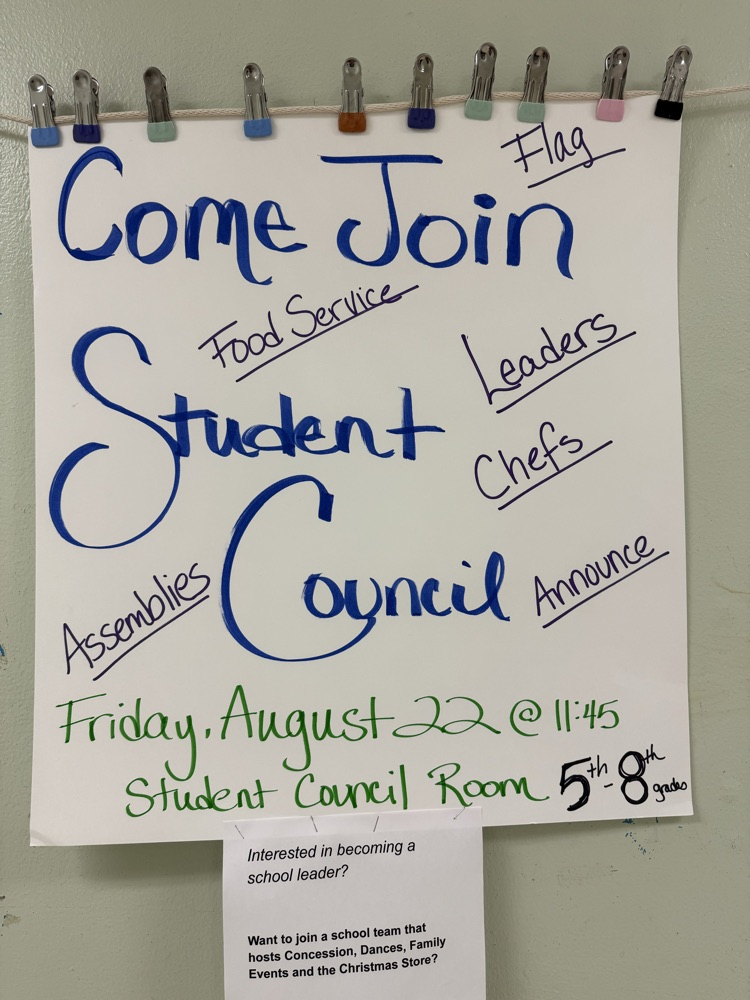 Flag
Come Join
Food Service
Leaders
Student
Chefs
Council
Announce
Assemblies
Friday, August 22 @ 11:45
Student Council Room 5th - 8th grades
Interested in becoming a
school leader?
Want to join a school team that
hosts Concession, Dances, Family
Events and the Christmas Store?